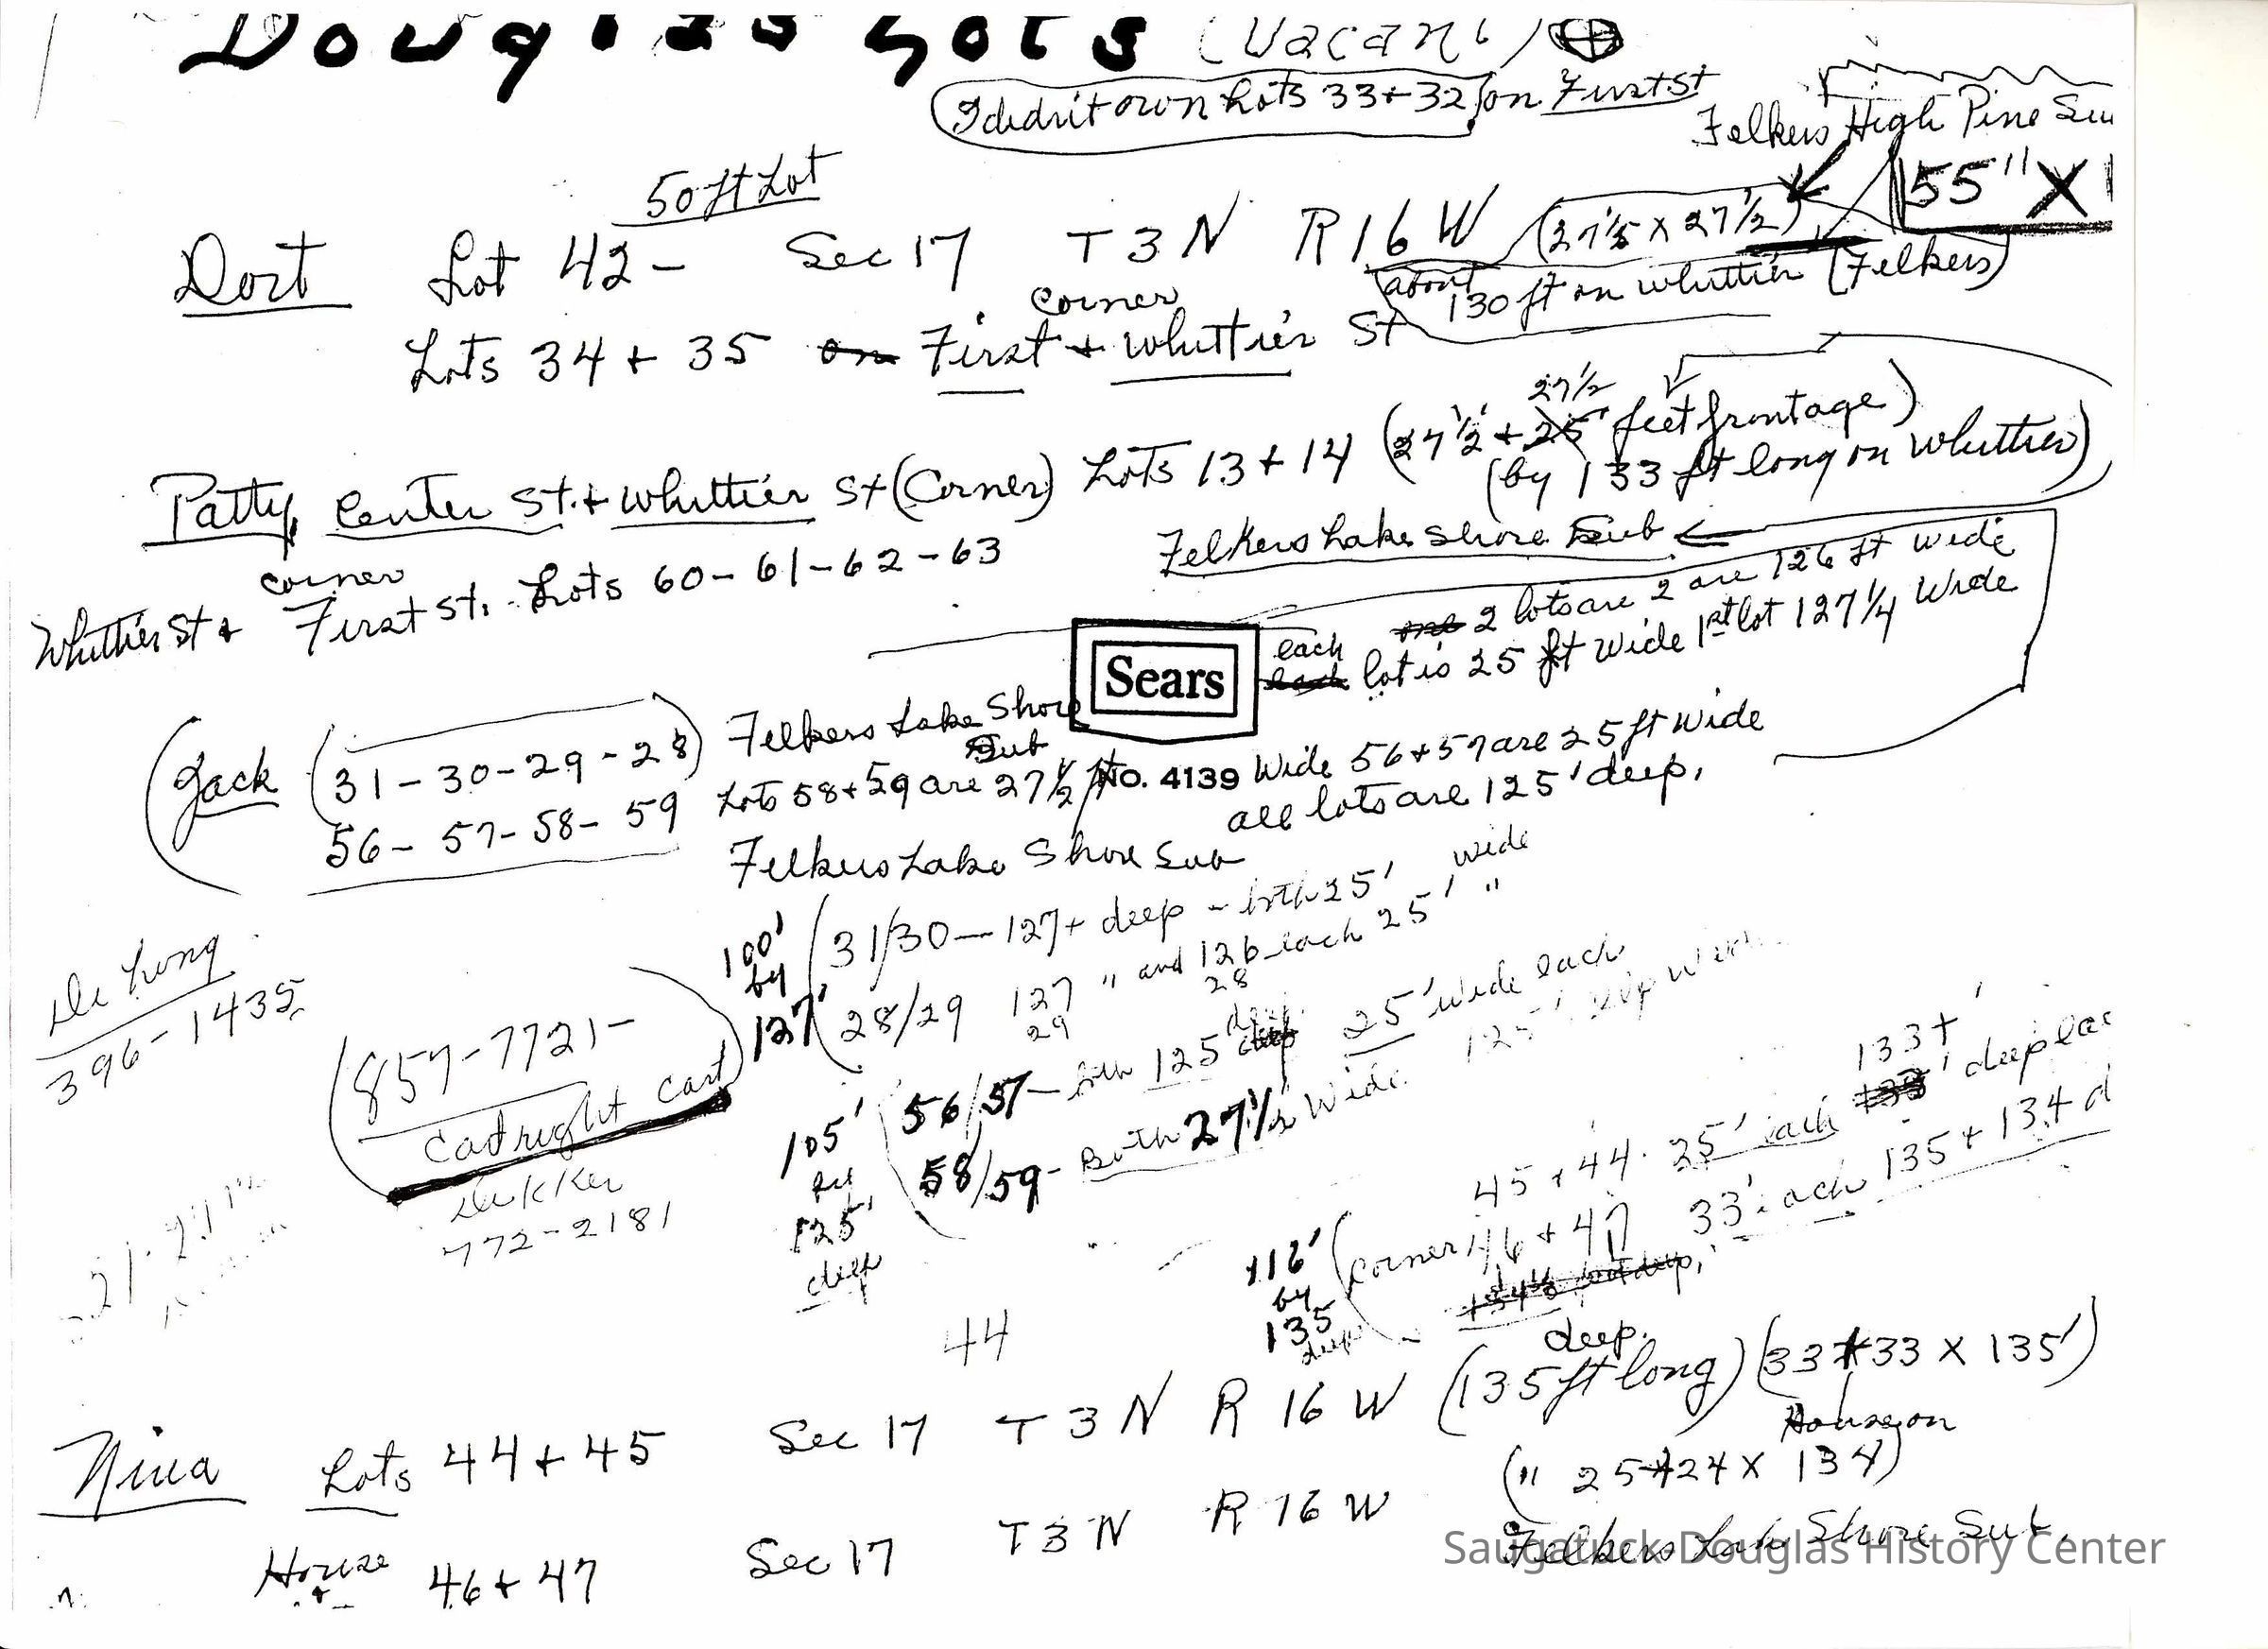 Douglas Lots (Vacant)
I didn't own Lots 33+32 on First St
Felkers High Pine Su
55" X 1
50 ft Lot
Dort Lot 42 - Sec 17 T 3 N R 16 W (27½ x 27½)
about 130 ft on Whittier (Felkers)
corner
Lots 34 + 35 on First + Whittier St
27½
Patty Center St. + Whittier St (Corner) Lots 13 + 14 (27½' + 25' feet frontage)
(by 133 ft long on Whittier)
Felkers Lake Shore Sub
corner
Whittier St + First St. Lots 60-61-62-63
each one 2 lots are 2 are 126 ft wide
each lot is 25 ft wide 1st lot 127¼ wide
Sears
Jack (31-30-29-28) Felkers Lake Shore Sub
56-57-58-59 Lots 58+59 are 27½ ft
NO. 4139
Wide 56+57 are 25 ft wide
all lots are 125' deep.
Felkers Lake Shore Sub
100' by 127'
31/30 — 127+ deep - both 25' wide
28/29 127 " and 126 each 25' "
29 28
De Long
396-1435
857-7721-
Cadright cart
Dekker
772-2181
105' by 125' deep
56/57 - both 125' deep 25' wide each
58/59 - Both 27½ Wide 125'
133+'
45 + 44. 25' each 133' deep
116' by 135 deep
Corner 46 + 47 33' each 135 + 134 d
44
deep.
Nina Lots 44 + 45 Sec 17 T 3 N R 16 W (135 ft long) (33+33 x 135')
House on
(" 25+24 x 134)
House + 46 + 47 Sec 17 T 3 N R 16 W
Felkers Lake Shore Sub.
Saugatuck-Douglas History Center